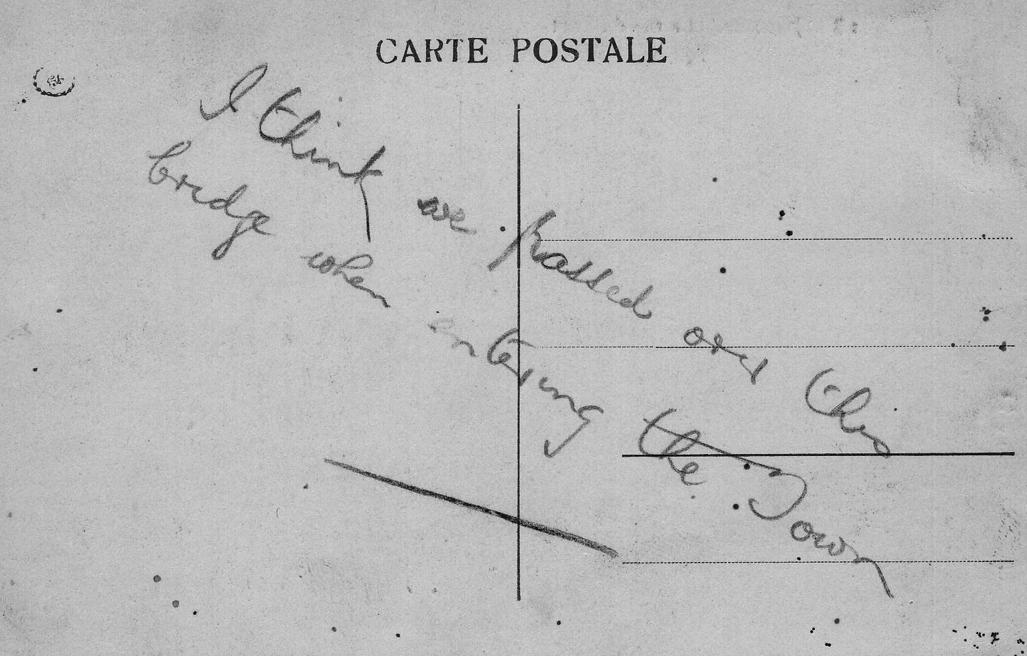 CARTE POSTALE
I think we passed over this
bridge when entering the Town